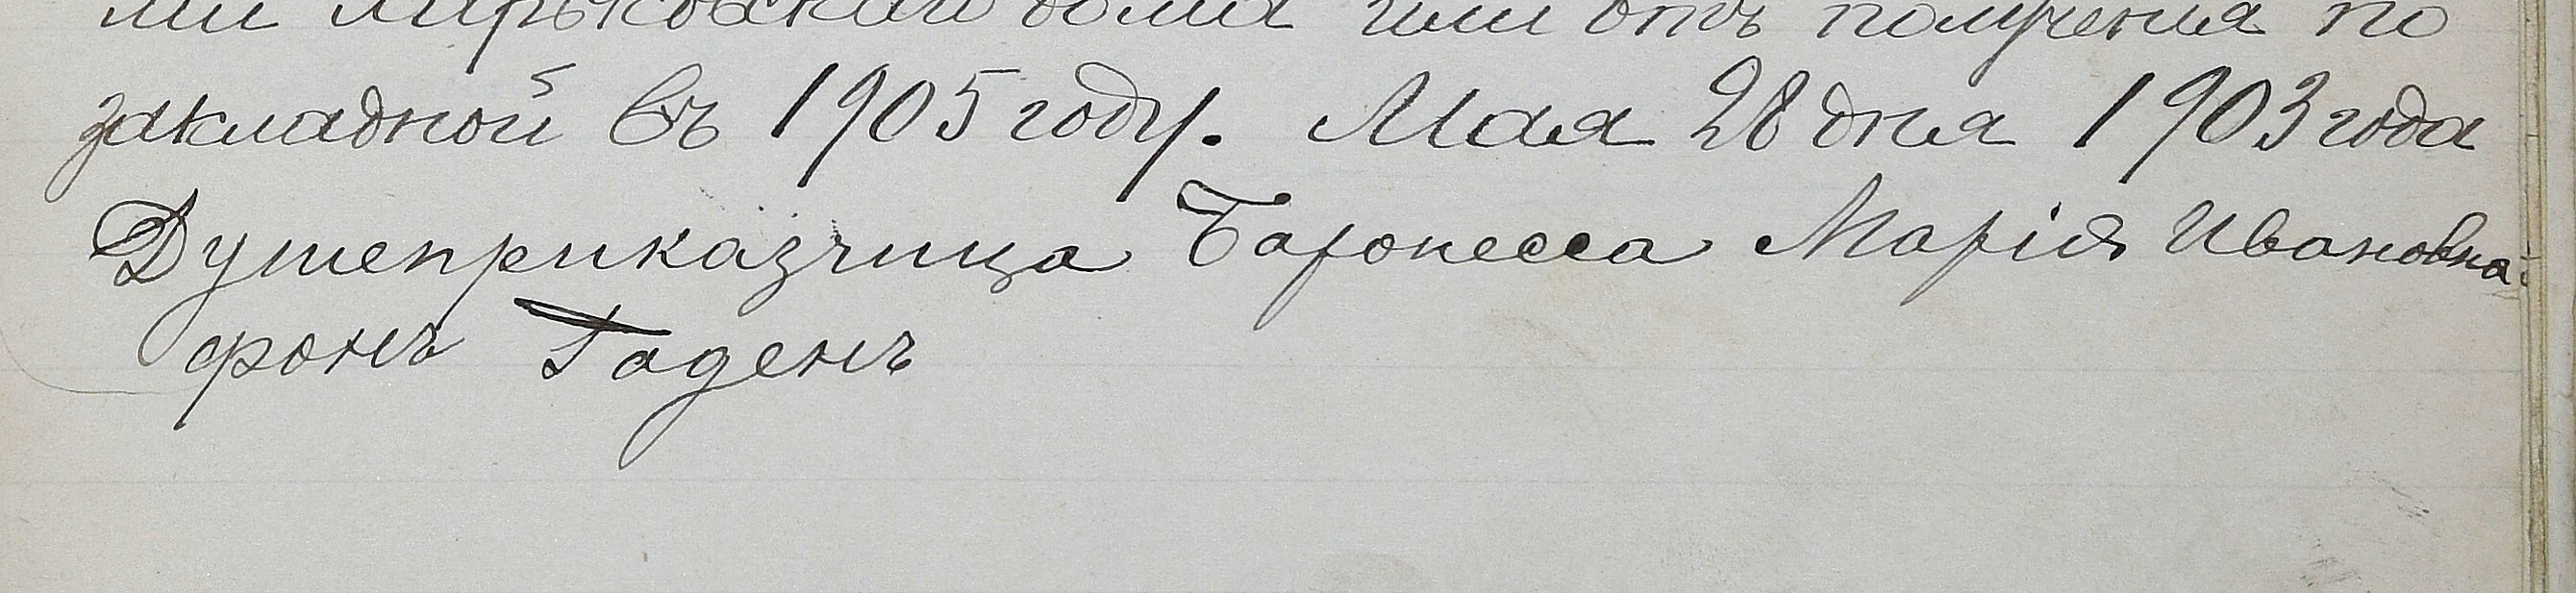 ми Харьковскаго дома или отъ полученія по
закладной въ 1905 году. Мая 28 дня 1903 года
Душеприказчица Баронесса Марія Ивановна
фонъ Гаденъ